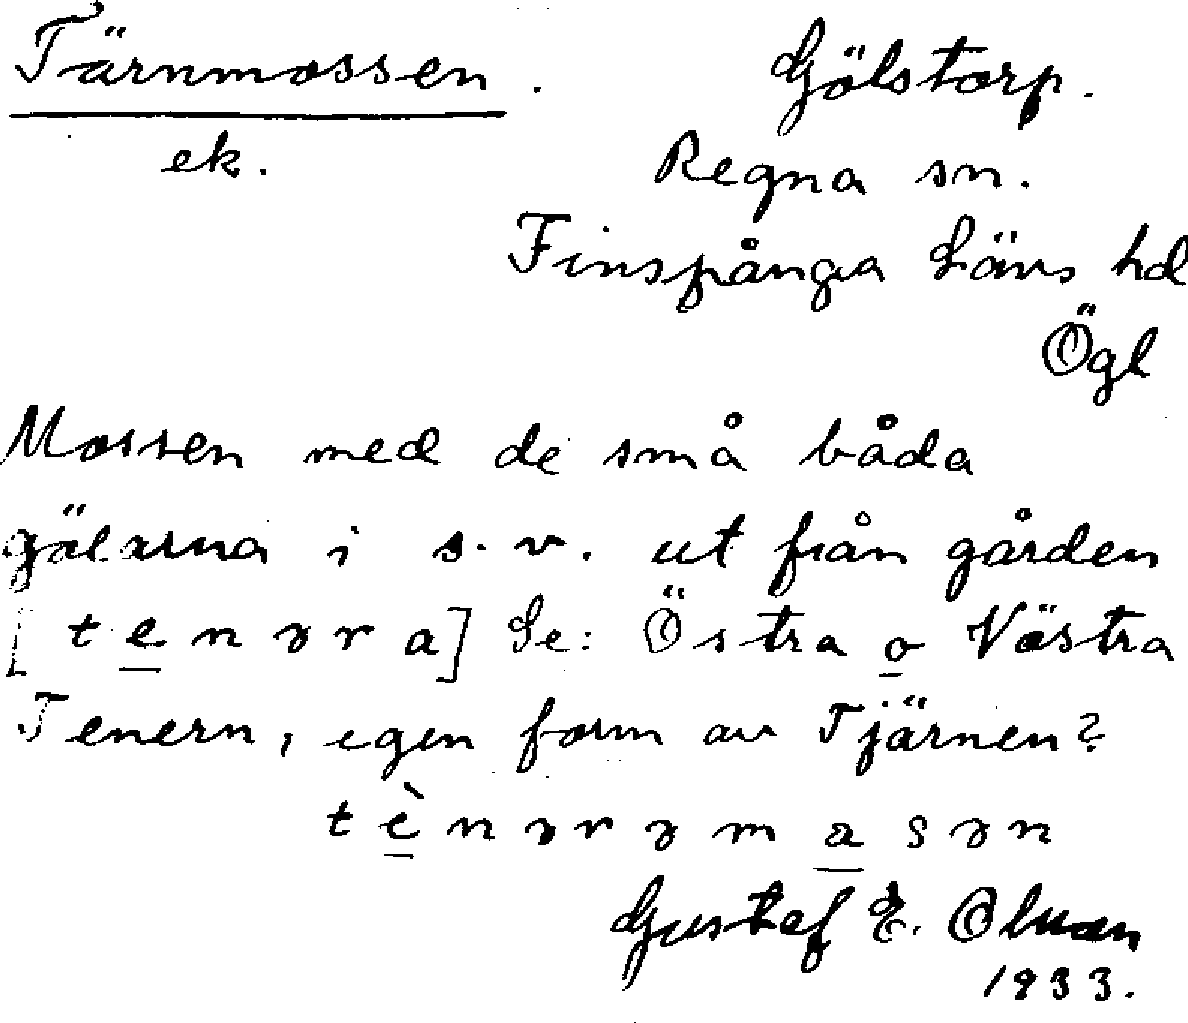 Tärnmossen. Gölstorp.
ek. Regna sn.
Finspånga Läns hd
Ögl
Mossen med de små båda
gölarna i s.v. ut från gården
[tenəra] Se: Östra o Västra
Tenern, egen form av Tjärnen?
tènərəmasən
Gustef E. Olman
1933.